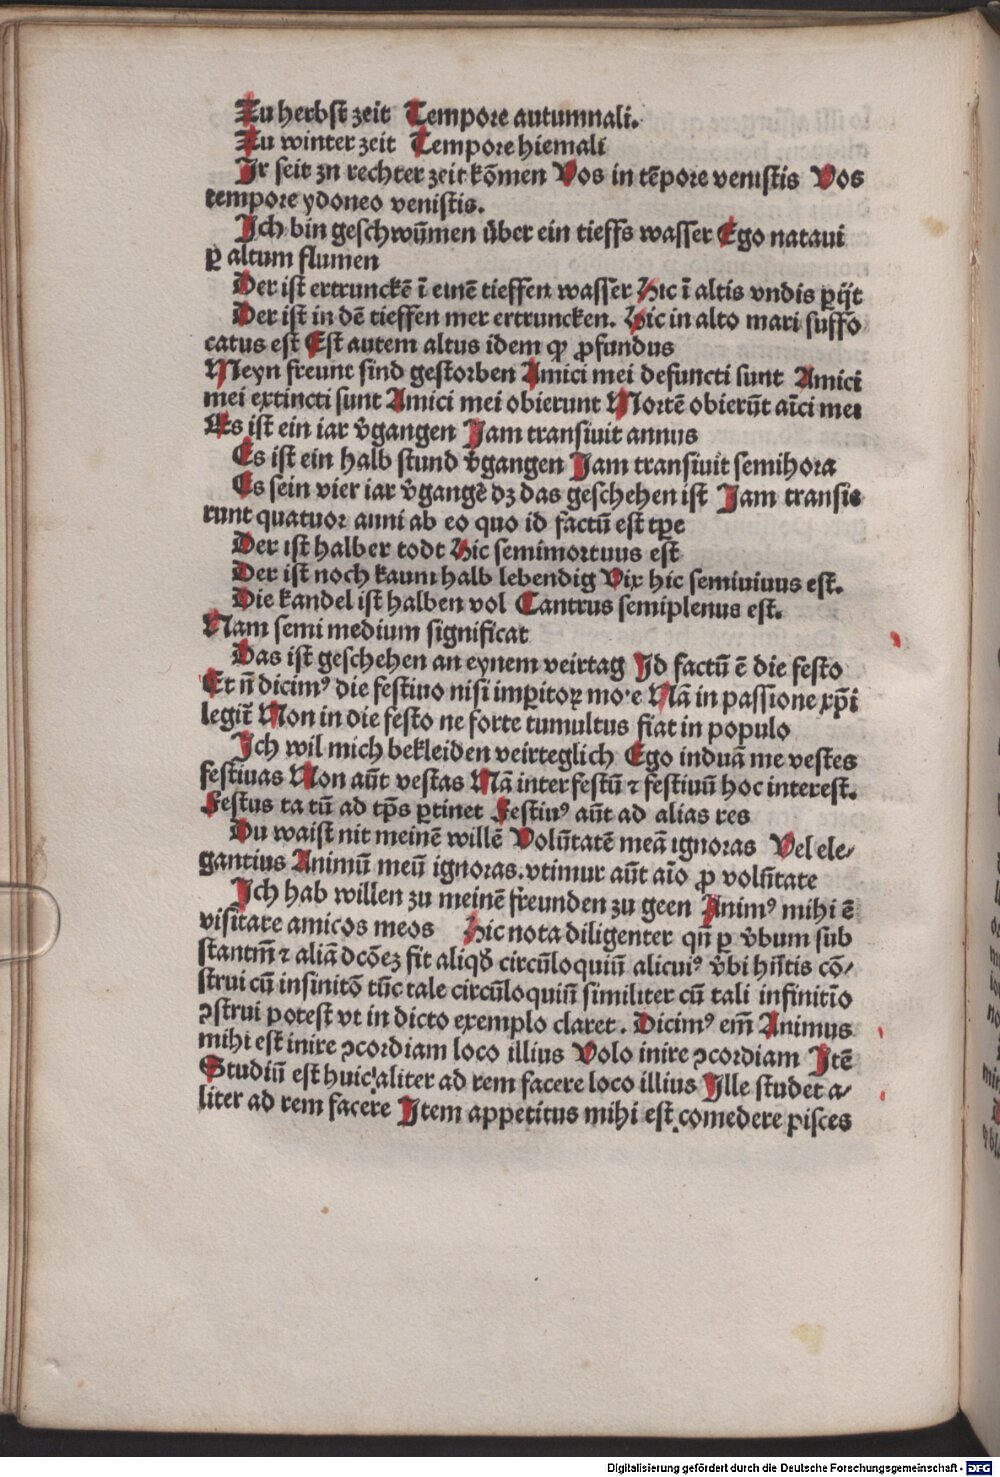 Zu herbst zeit Tempore autumnali.
Zu winter zeit Tempore hiemali
Ir seit zn rechter zeit kōmen Vos in tēpore venistis Vos
tempore ydoneo venistis.
Ich bin geschwūmen über ein tieffs wasser Ego nataui
ꝑ altum flumen
Der ist ertrunckē ī einē tieffen wasser Hic ī altis vndis ꝑijt
Der ist in dē tieffen mer ertruncken. Hic in alto mari suffo
catus est Est autem altus idem ꝙ ꝓfundus
Meyn freunt sind gestorben Amici mei defuncti sunt Amici
mei extincti sunt Amici mei obierunt Mortē obierūt aīci mei
As ist ein iar v̄gangen Jam transiuit annus
Es ist ein halb stund v̄gangen Jam transiuit semihora
Es sein vier iar v̄gangē dz das geschehen ist Jam transie
runt quatuor anni ab eo quo id factū est tꝑe
Der ist halber todt Hic semimortuus est
Der ist noch kaum halb lebendig Vix hic semiuiuus est.
Die kandel ist halben vol Cantrus semiplenus est.
Nam semi medium significat
Das ist geschehen an eynem veirtag Id factū ē die festo
Et n̄ dicimꝰ die festiuo nisi imꝑitoꝝ mo·e Nā in passione xp̄i
legit̄ Non in die festo ne forte tumultus fiat in populo
Ich wil mich bekleiden veirteglich Ego induā me vestes
festiuas Non aūt vestas Nā inter festū ⁊ festiuū hoc interest.
Festus ta tū ad tp̄s ꝑtinet Festiuꝰ aūt ad alias res
Du waist nit meinē willē Volūtatē meā ignoras Vel ele⸗
gantius Animū meū ignoras. vtimur aūt aīo ꝓ volūtate
Ich hab willen zu meinē freunden zu geen Animꝰ mihi ē
visitare amicos meos Hic nota diligenter qn̄ ꝑ v̄bum sub
stantm̄ ⁊ aliā dcōeꝫ fit aliqđ circūloquiū alicuiꝰ v̄bi hn̄tis cō⸗
strui cū infinitō tūc tale circūloquiū similiter cū tali infinitīo
ꝯstrui potest vt in dicto exemplo claret. Dicimꝰ em̄ Animus
mihi est inire ꝯcordiam loco illius Volo inire ꝯcordiam Itē
Studiū est huic aliter ad rem facere loco illius Ille studet a⸗
liter ad rem facere Item appetitus mihi est comedere pisces
Digitalisierung gefördert durch die Deutsche Forschungsgemeinschaft - DFG